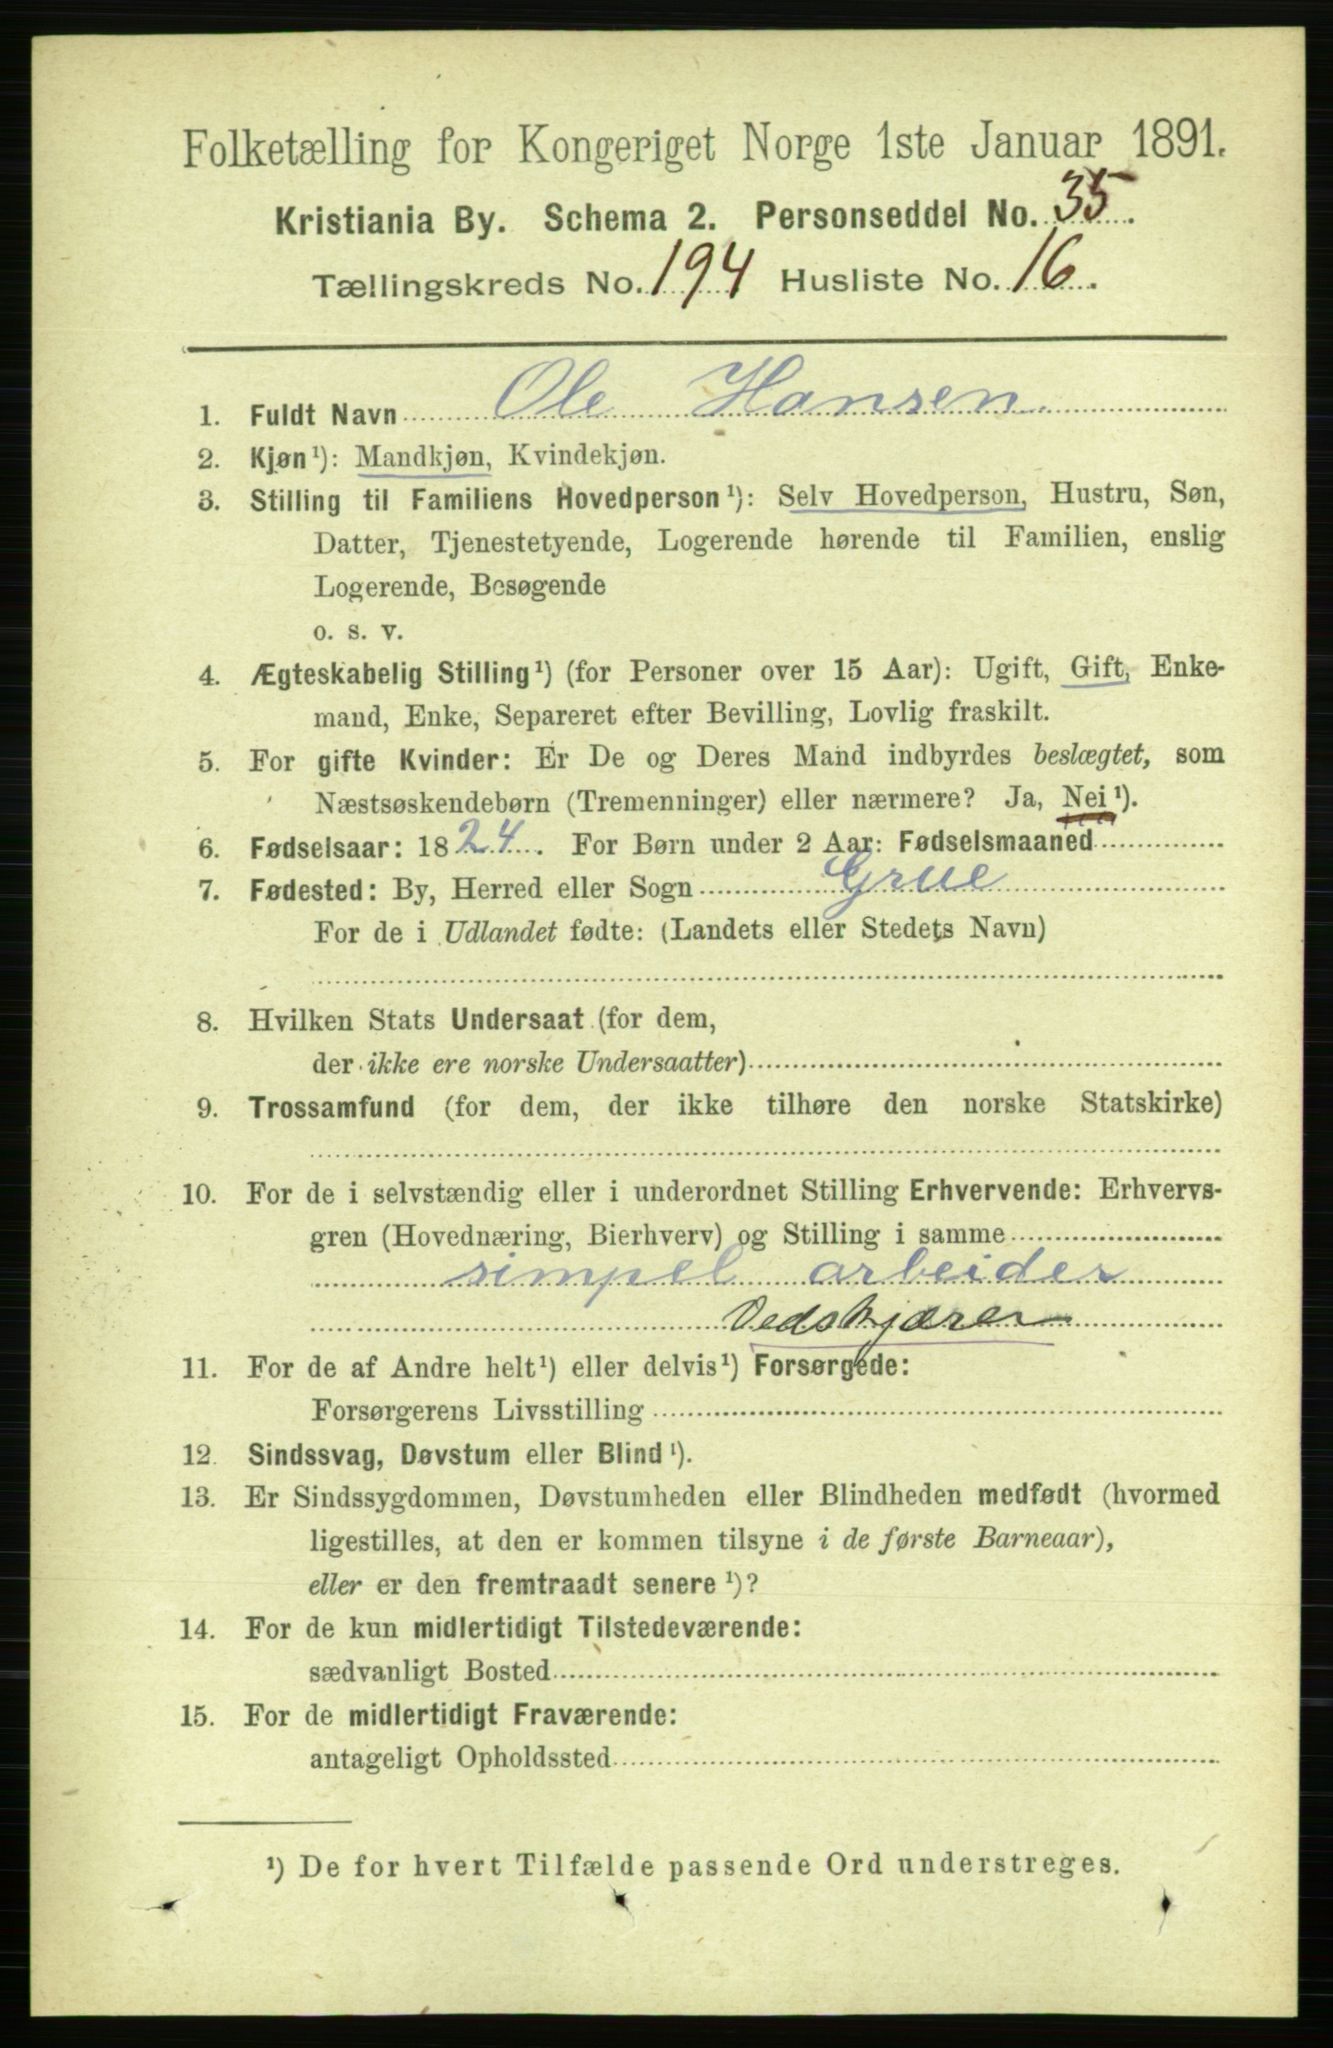 Folketælling for Kongeriget Norge 1ste Januar 1891.
Kristiania By. Schema 2. Personseddel No. 35.
Tællingskreds No. 194 Husliste No. 16.
1. Fuldt Navn Ole Hansen
2. Kjøn¹): Mandkjøn, Kvindekjøn.
3. Stilling til Familiens Hovedperson¹): Selv Hovedperson, Hustru, Søn,
Datter, Tjenestetyende, Logerende hørende til Familien, enslig
Logerende, Besøgende
o. s. v.
4. Ægteskabelig Stilling¹) (for Personer over 15 Aar): Ugift, Gift, Enke-
mand, Enke, Separeret efter Bevilling, Lovlig fraskilt.
5. For gifte Kvinder: Er De og Deres Mand indbyrdes beslægtet, som
Næstsøskendebørn (Tremenninger) eller nærmere? Ja, Nei¹).
6. Fødselsaar: 1824. For Børn under 2 Aar: Fødselsmaaned
7. Fødested: By, Herred eller Sogn Grue
For de i Udlandet fødte: (Landets eller Stedets Navn)
8. Hvilken Stats Undersaat (for dem,
der ikke ere norske Undersaatter)
9. Trossamfund (for dem, der ikke tilhøre den norske Statskirke)
10. For de i selvstændig eller i underordnet Stilling Erhvervende: Erhvervs-
gren (Hovednæring, Bierhverv) og Stilling i samme
simpel arbeider
Vedskjærer
11. For de af Andre helt¹) eller delvis¹) Forsørgede:
Forsørgerens Livsstilling
12. Sindssvag, Døvstum eller Blind¹).
13. Er Sindssygdommen, Døvstumheden eller Blindheden medfødt (hvormed
ligestilles, at den er kommen tilsyne i de første Barneaar),
eller er den fremtraadt senere¹)?
14. For de kun midlertidigt Tilstedeværende:
sædvanligt Bosted
15. For de midlertidigt Fraværende:
antageligt Opholdssted
¹) De for hvert Tilfælde passende Ord understreges.